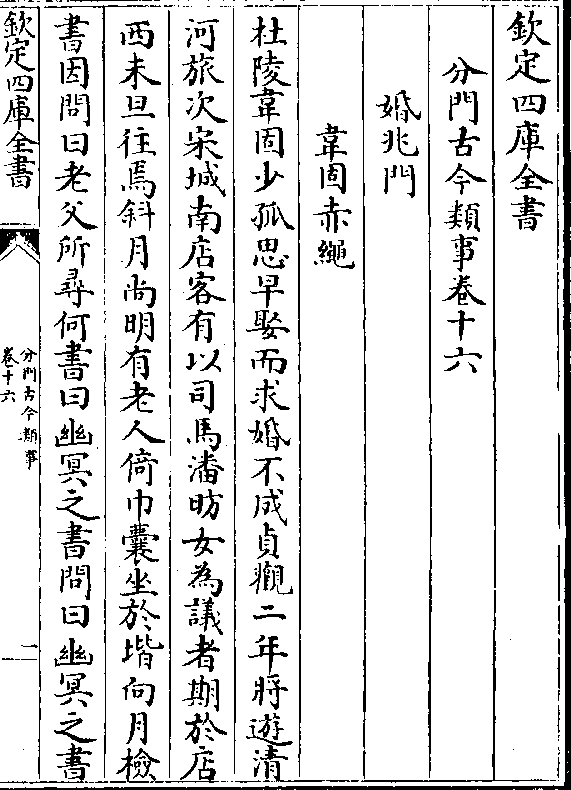 欽定四庫全書
分門古今類事卷十六
婚兆門
韋固赤繩
杜陵韋固少孤思早娶而求婚不成貞觀二年將遊清
河旅次宋城南店客有以司馬潘昉女為議者期於店
西未旦往焉斜月尚明有老人倚巾囊坐於堦向月檢
書因問曰老父所尋何書曰幽冥之書問曰幽冥之書
欽定四庫全書
分門古今類事
卷十六
一